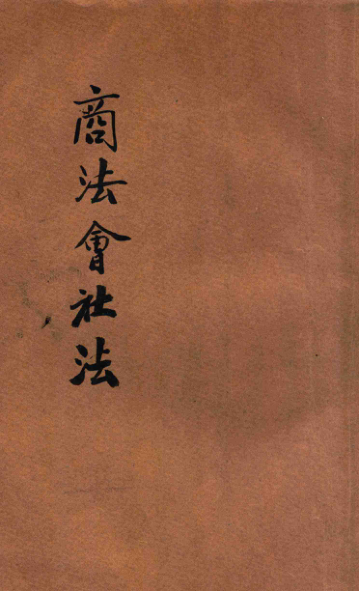 商法會社法